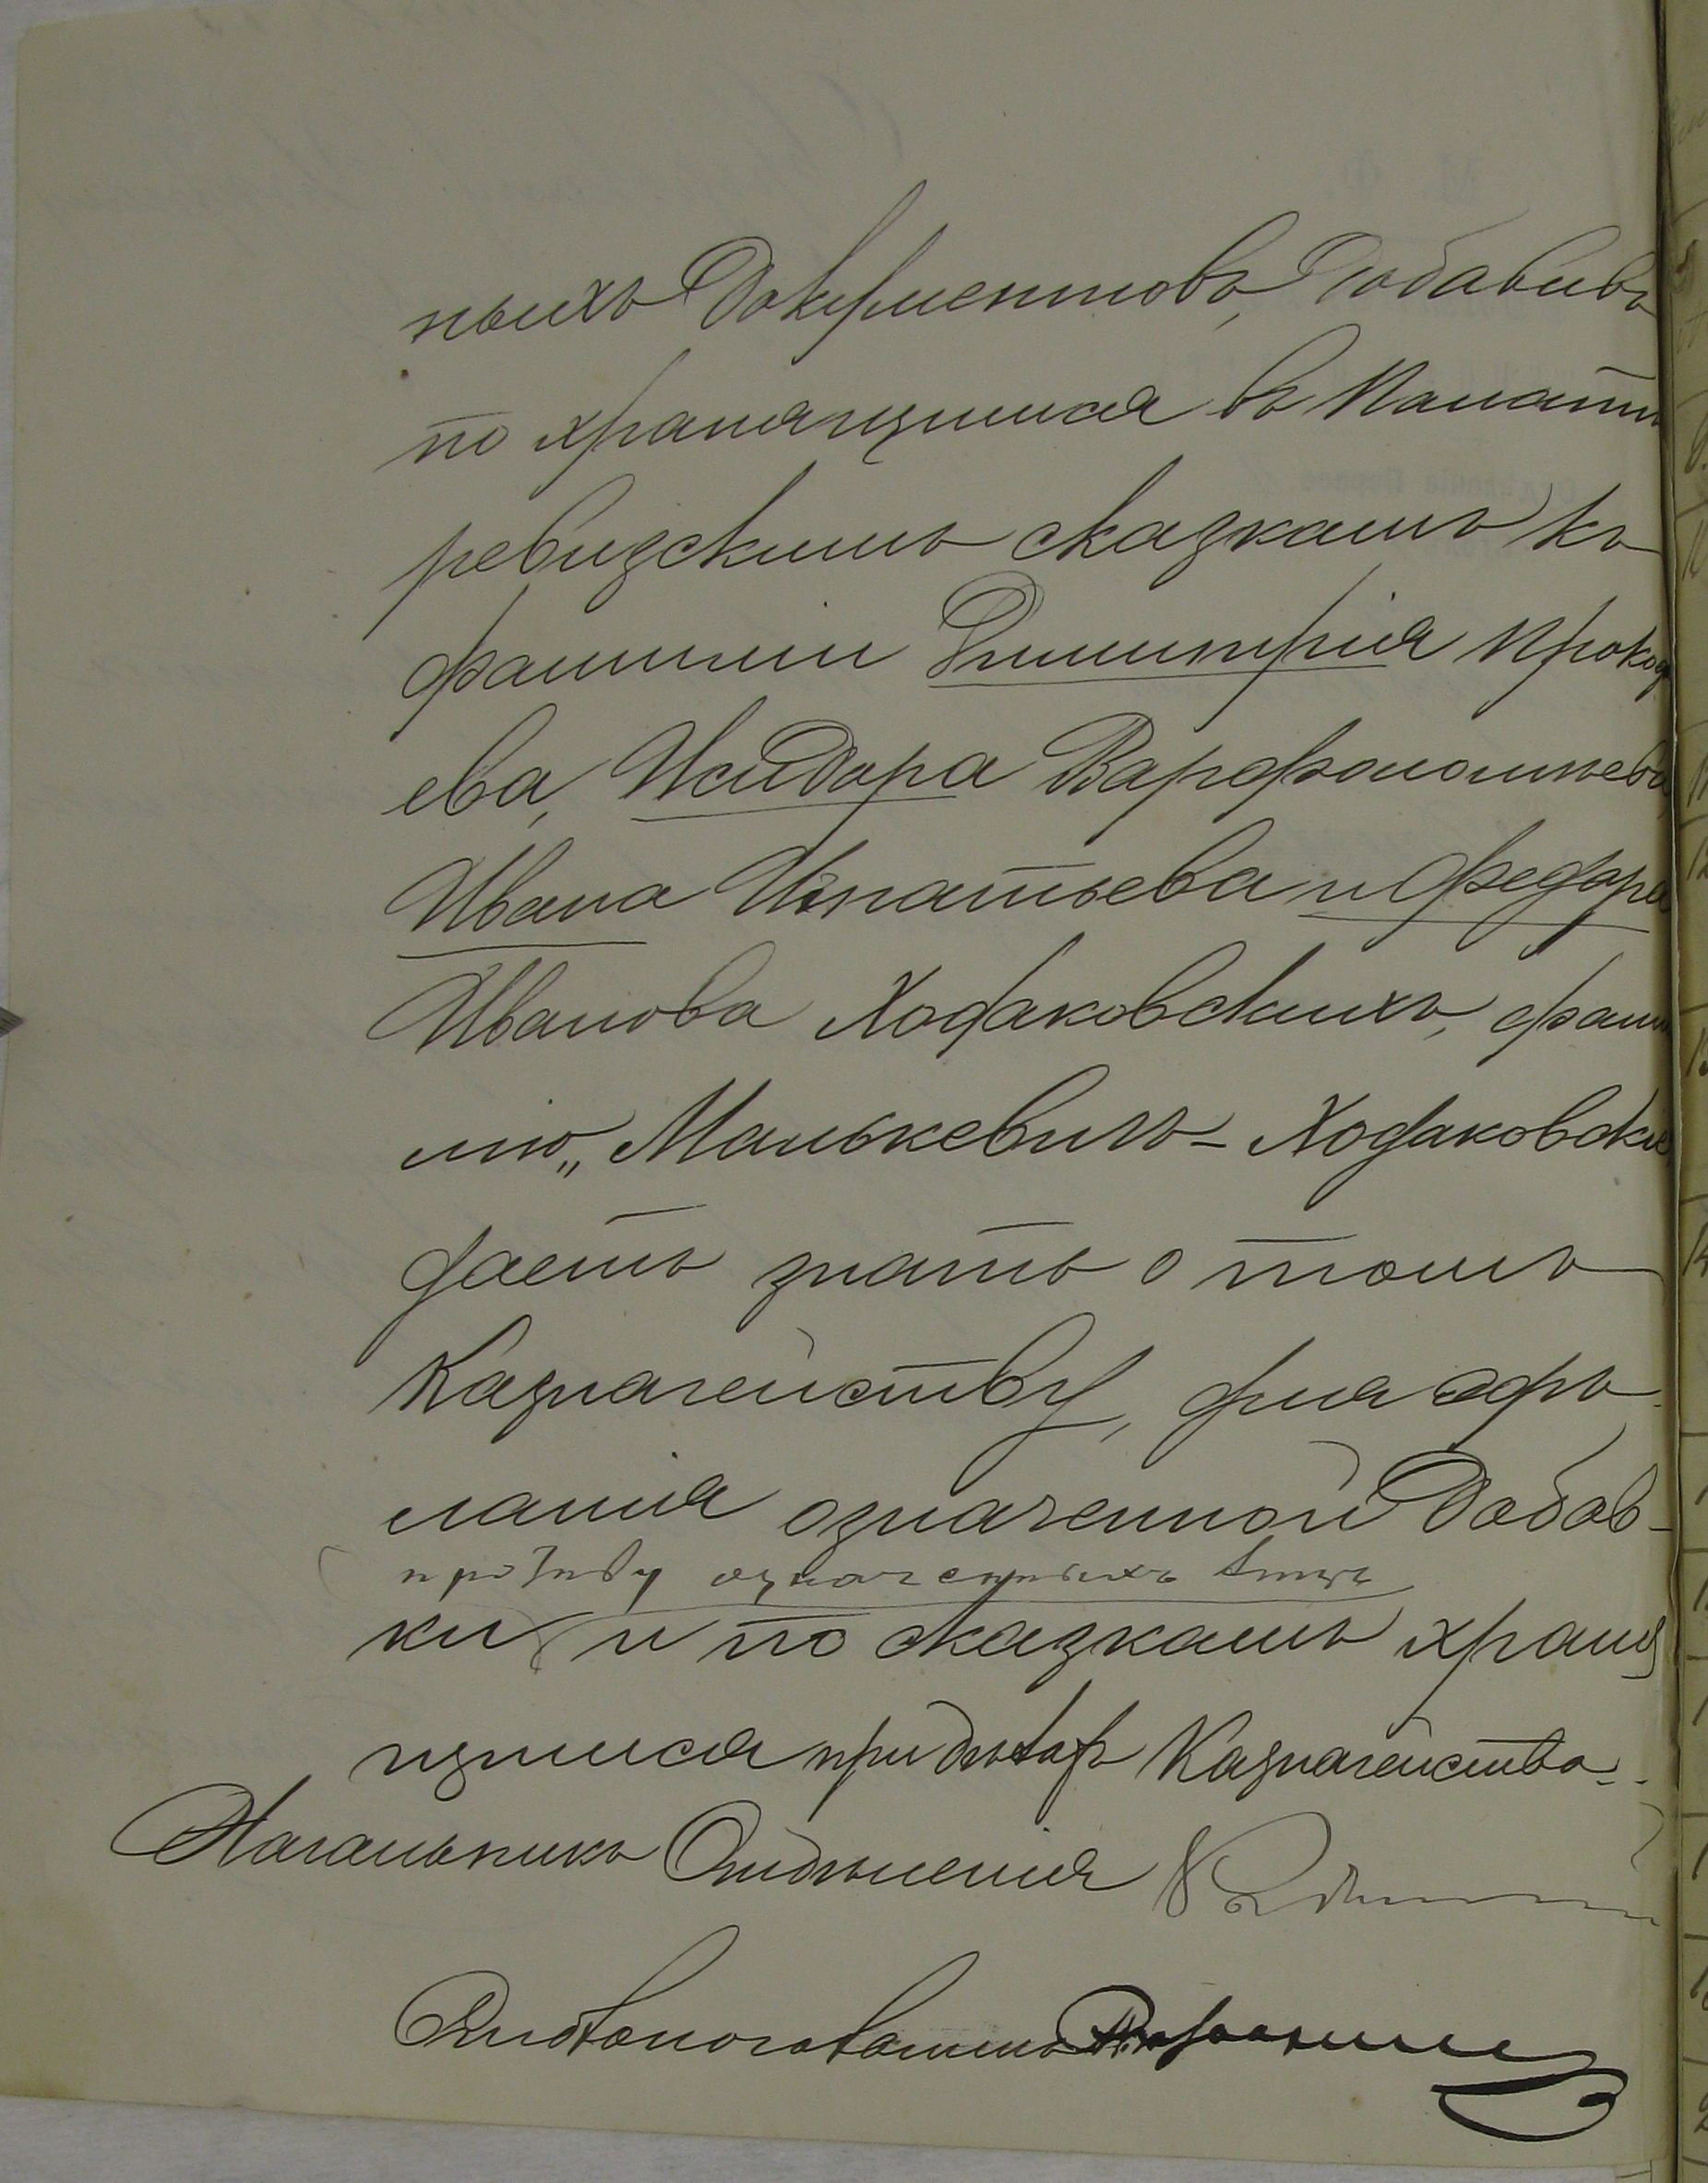 ныхъ документовъ, добавивъ
по хранящимся въ Палатѣ
ревизскимъ сказкамъ къ
фамиліи Димитрія Прокоф
ева, Исидора Варфоломѣева,
Ивана Игнатьева и Федора
Иванова Ходаковскихъ, фами
лію „Малькевичъ-Ходаковскіе,
даетъ знать о томъ
Казначейству, для сдѣ-
ланія означенной добав-
означенныхъ лицъ
ки и по сказкамъ храня
щимся при дѣлахъ Казначейства.
Начальникъ Отдѣленія
Дѣлопроизводитель